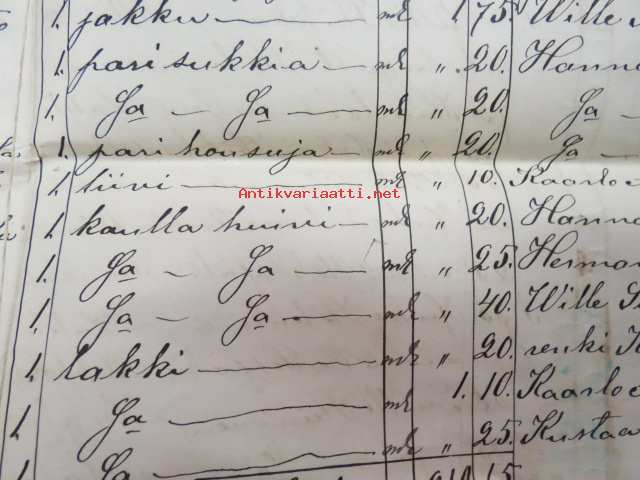 1. jakku — mk 1. 75. Wille
1. pari sukkia — mk " 20. Hanna
1. Ja — Ja — mk " 20. Ja —
1. pari housuja — mk " 20. Ja —
1. liivi — mk " 10. Kaarlo
Antikvariaatti.net
1. kaulla huivi — mk " 20. Hanna
1. Ja — Ja — mk " 25. Herman
1. Ja — Ja — mk " 40. Wille S
1. lakki — mk " 20. renki K
1. Ja — mk 1. 10. Kaarlo
1. Ja — mk " 25. Kustaa
15